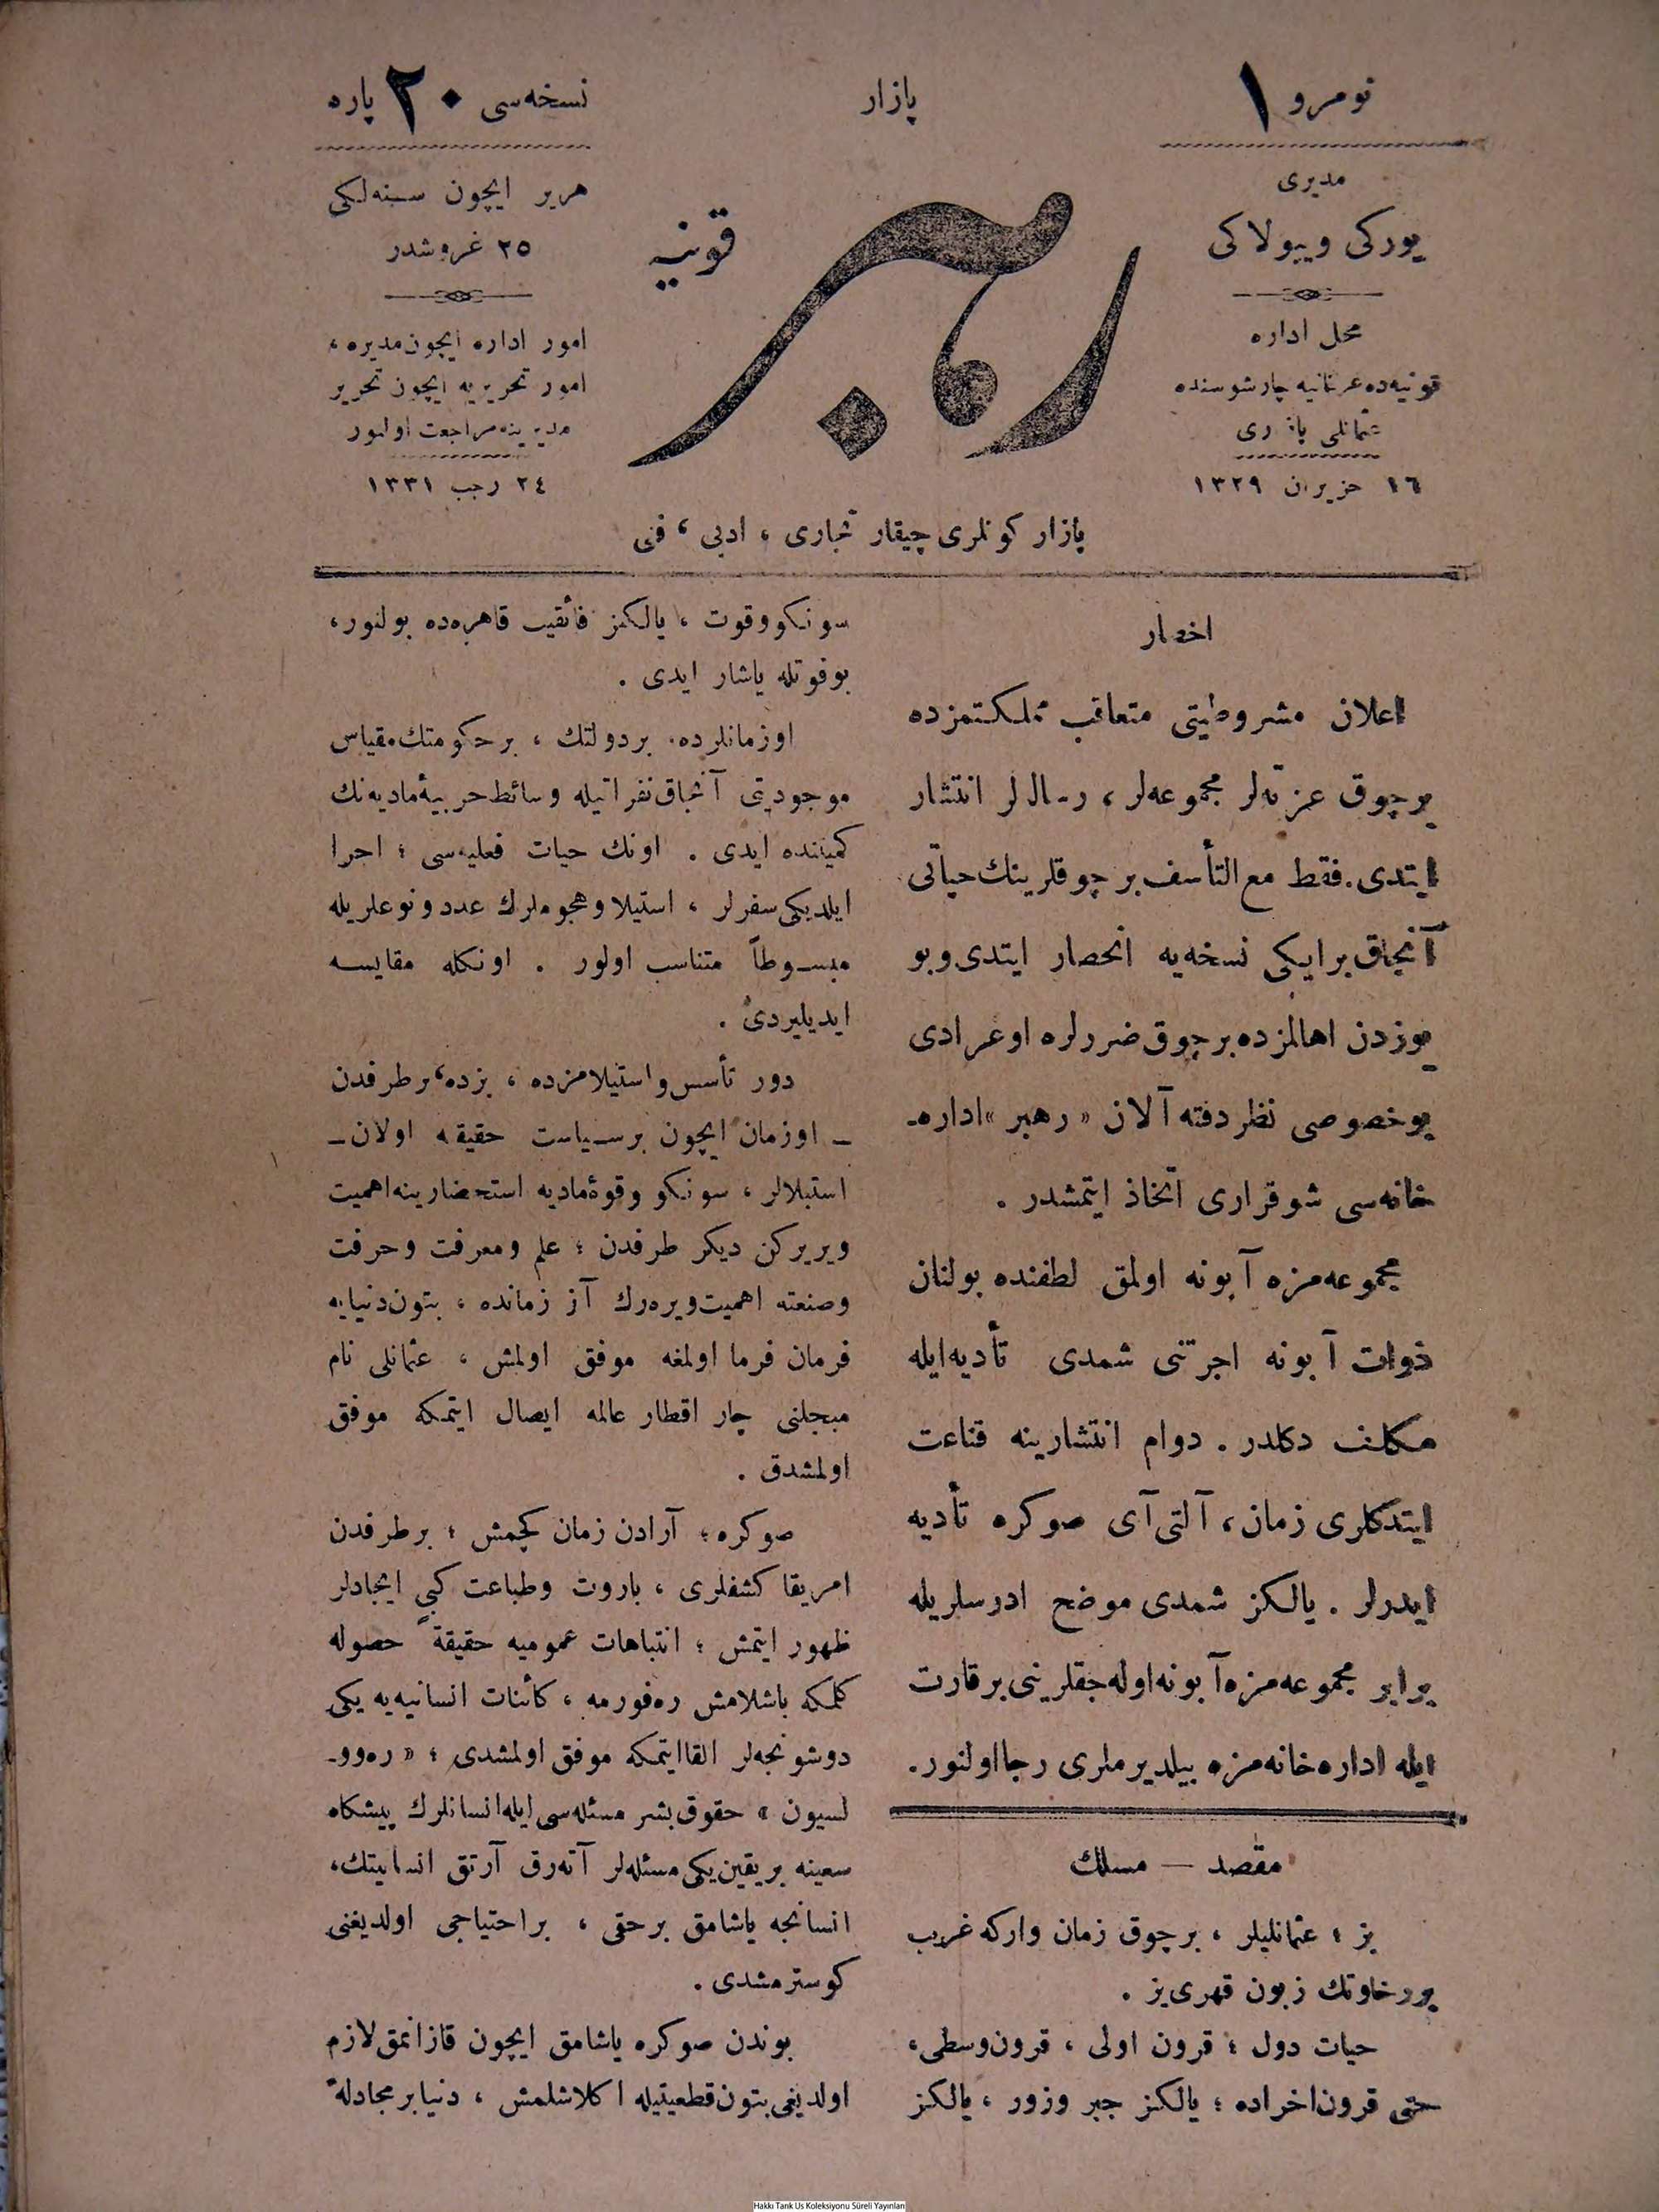 نومرو ١
پازار
نسخه‌سی ٢٠ پاره
مدیری
یورکی ویپولاکی
محل اداره
قونیه‌ده عثمانیه چارشوسنده
عثمانلی پازاری
١٦ حزیران ١٣٢٩
قونیه
رهبر
هریر ایچون سنه‌لکی
٢٥ غروشدر
امور اداره ایچون مدیره ،
امور تحریریه ایچون تحریر
مدیرینه مراجعت اولنور
٢٤ رجب ١٣٣١
پازار کونلری چیقار تجاری ، ادبی ، فنی
اخطار
اعلان مشروطیتی متعاقب مملکتمزده
برچوق غزته‌لر مجموعه‌لر ، رساله‌لر انتشار
ایتدی. فقط مع التأسف برچوقلرینك حیاتی
آنجاق برایکی نسخه‌یه انحصار ایتدی و بو
یوزدن اهالمزده برچوق ضررلره اوغرادی
بوخصوصی نظر دقته آلان « رهبر » اداره‌ـ
خانه‌سی شو قراری اتخاذ ایتمشدر .
مجموعه‌مزه آبونه اولمق لطفنده بولنان
ذوات آبونه اجرتنی شمدی تأدیه ایله
مکلف دکلدر . دوام انتشارینه قناعت
ایتدکلری زمان ، آلتی آی صوکره تأدیه
ایدرلر . یالکز شمدی موضح ادرسلریله
برابر مجموعه‌مزه آبونه اوله‌جقلرینی برقارت
ایله اداره‌خانه‌مزه بیلدیرملری رجا اولنور.
مقصد — مسلك
بز ؛ عثمانلیلر ، برچوق زمان وارکه غریب
بررخاوتك زبون قهری‌یز .
حیات دول ؛ قرون اولی ، قرون وسطی ،
حتی قرون اخراده ؛ یالکز جبر وزور ، یالکز
سونکو وقوت ، یالکز فائقیت قاهره‌ده بولنور،
بوقوتله یاشار ایدی .
اوزمانلرده، بردولتك ، برحکومتك مقیاس
موجودیتی آنجاق نفراتیله وسائط حربیهٔ مادیه‌نك
کمیتنده ایدی . اونك حیات فعلیه‌سی ؛ اجرا
ایلدیکی سفرلر ، استیلا وهجوملرك عدد ونوعلریله
مبسوطاً متناسب اولور . اونکله مقایسه
ایدیلیردی .
دور تأسس واستیلامزده ، بزده، برطرفدن
ـ اوزمان ایچون برسیاست حقیقه اولان ـ
استیلالر ، سونکو وقوهٔ مادیه استحضارینه اهمیت
ویریرکن دیکر طرفدن ؛ علم ومعرفت وحرفت
وصنعته اهمیت ویره‌رك آز زمانده ، بتون دنیایه
فرمان فرما اولمغه موفق اولمش ، عثمانلی نام
مبجلنی چار اقطار عالمه ایصال ایتمکه موفق
اولمشدق .
صوکره ؛ آرادن زمان کچمش ؛ برطرفدن
امریقا کشفلری ، باروت وطباعت کبی ایجادلر
ظهور ایتمش ؛ انتباهات عمومیه حقیقةً حصوله
کلمکه باشلامش ره‌فورمه ، کائنات انسانیه‌یه یکی
دوشونجه‌لر القا ایتمکه موفق اولمشدی ؛ « ره‌وو‌ـ
لسیون » حقوق بشر مسئله‌سی ایله انسانلرك پیشکاه
سعینه بریقین یکی مسئله‌لر آته‌رق آرتق انسانیتك ،
انسانجه یاشامق برحقی ، براحتیاجی اولدیغنی
کوسترمشدی .
بوندن صوکره یاشامق ایچون قازانمق لازم
اولدیغی بتون قطعیتیله اکلاشلمش ، دنیا بر مجادلهٔ
Hakkı Tarık Us Koleksiyonu Süreli Yayınları